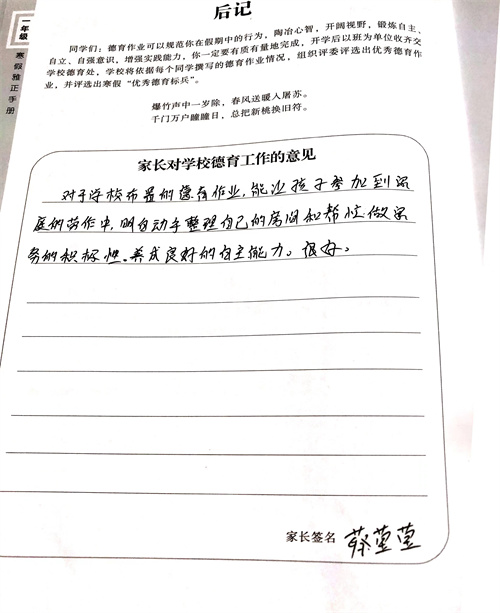 后记
一年级
寒假雅正手册
同学们：德育作业可以规范你在假期中的行为，陶冶心智，开阔视野，锻炼自主、
自立、自强意识，增强实践能力，你一定要有质有量地完成，开学后以班为单位收齐交
学校德育处，学校将依据每个同学撰写的德育作业情况，组织评委评选出优秀德育作
业，并评选出寒假“优秀德育标兵”。
爆竹声中一岁除，春风送暖入屠苏。
千门万户曈曈日，总把新桃换旧符。
家长对学校德育工作的意见
对于学校布置的德育作业，能让孩子参加到家
庭的劳作中，明白动手整理自己的房间和帮忙做家
务的积极性、养成良好的自主能力。很好。
家长签名 蔡莹莹